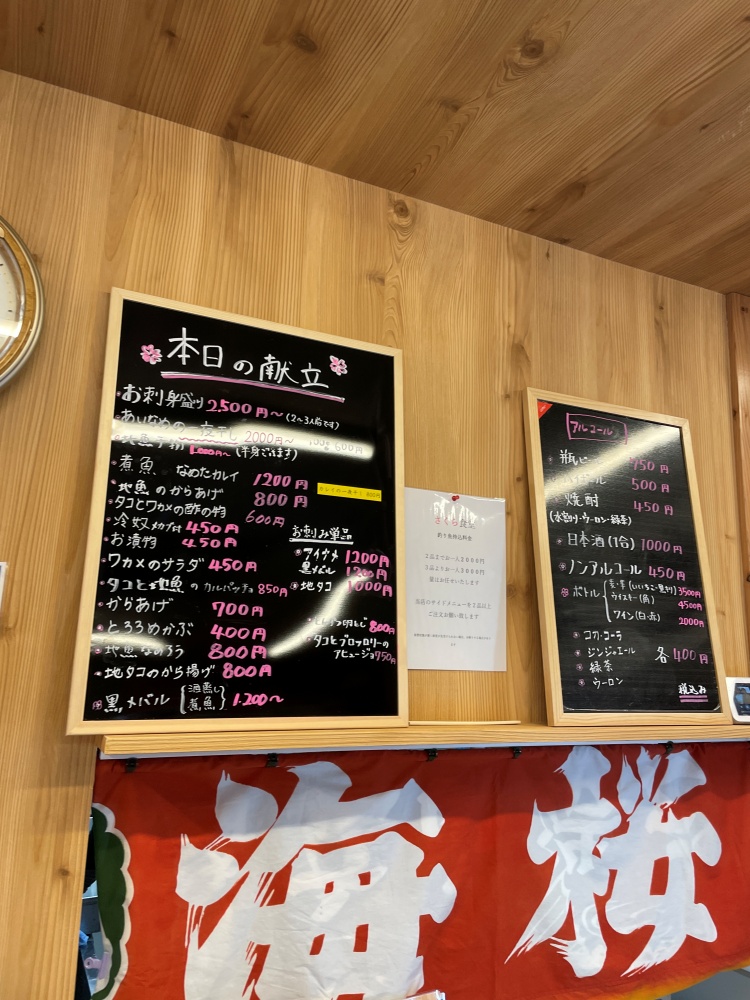 本日の献立
お刺身盛り 2,500円〜 (2〜3人前です)
あいなめの一夜干し 2000円〜
(半身ございます)
煮魚 なめたカレイ 1200円
地魚のからあげ 800円
タコとワカメの酢の物 600円
冷奴 メカブ付 450円
お漬物 450円
ワカメのサラダ 450円
タコと地魚のカルパッチョ 850円
からあげ 700円
とろろめかぶ 400円
地魚なめろう 800円
地タコのから揚げ 800円
黒メバル 酒蒸し 煮魚 1.200〜
カレイの一夜干し 800円
お刺み単品
アイナメ 1200円
黒メバル 1200円
地タコ 1000円
800円
タコとブロッコリーの
アヒージョ 750円
さくら食堂
釣り魚持込料金
アルコール
750円
500円
焼酎 450円
(水割り・ウーロン・緑茶)
日本酒(1合) 1000円
ノンアルコール 450円
ボトル 麦・芋(いいちこ・黒霧) 3500円
ウイスキー(角) 4500円
ワイン(白・赤) 2000円
コカ・コーラ
ジンジャエール
緑茶
ウーロン
各400円
税込み
海 桜